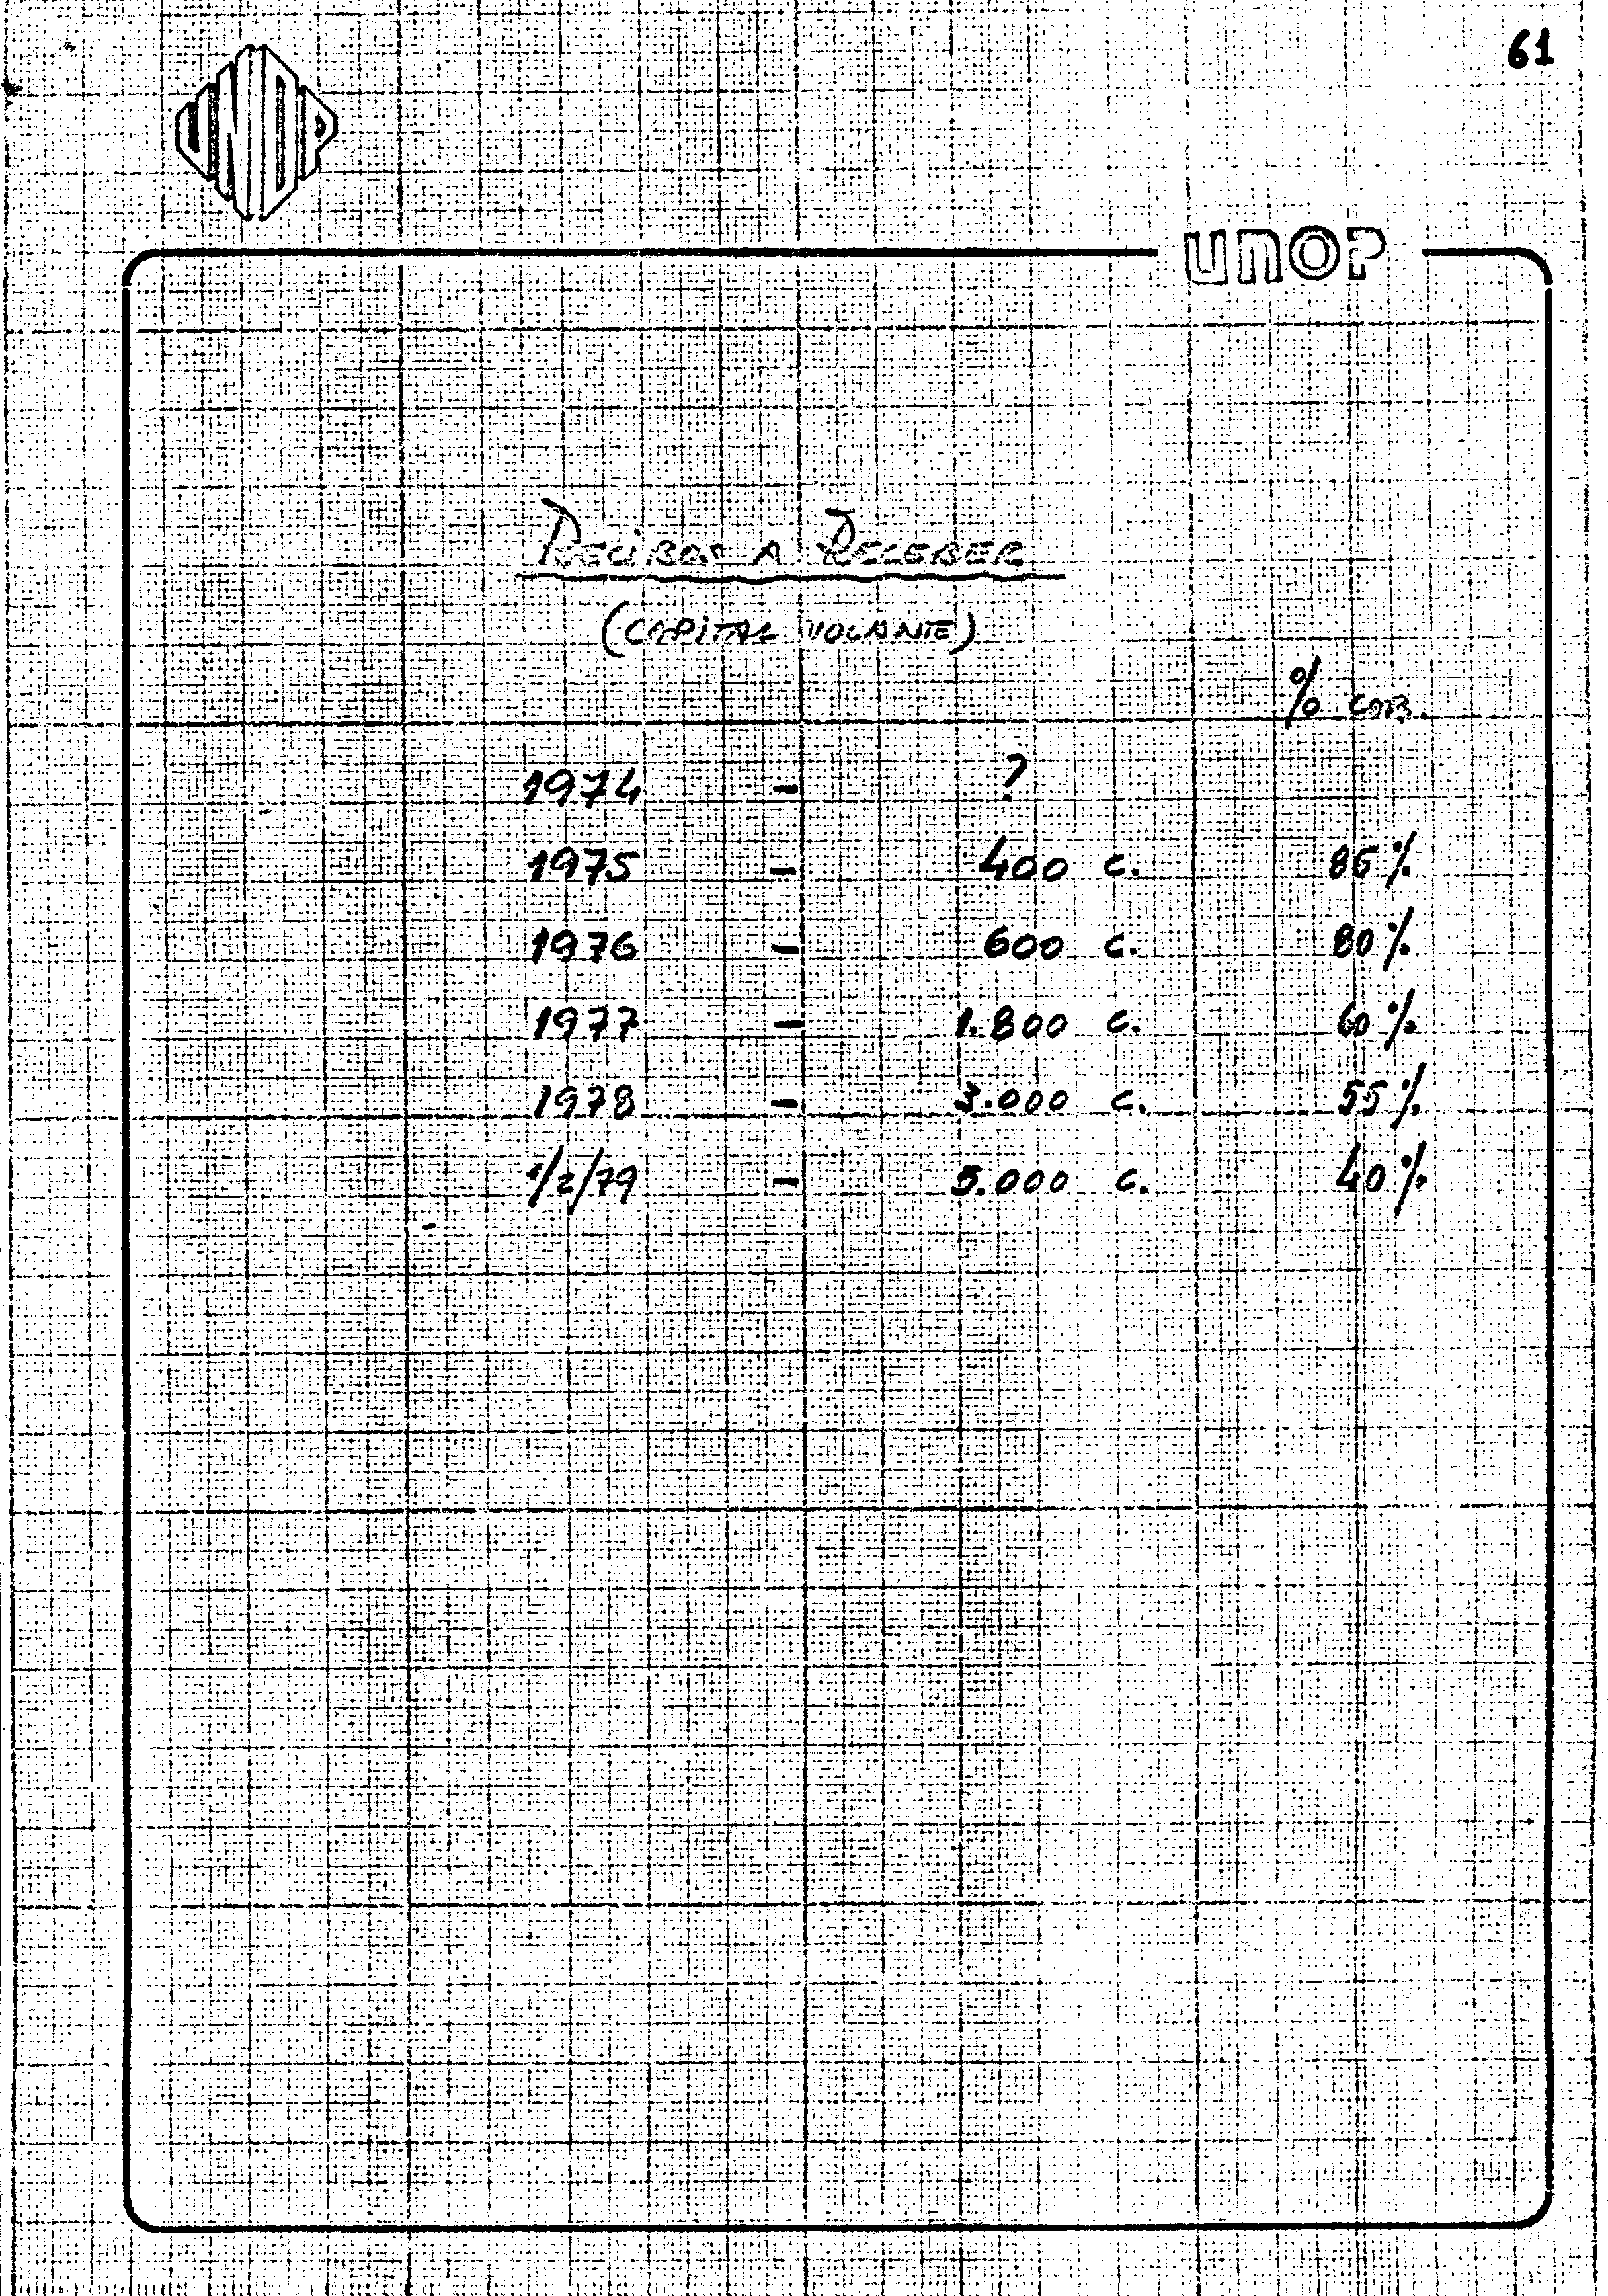 61
UNOP
RECIBOS A RECEBER
(CAPITAL VOLANTE)
% COB.
1974 - ?
1975 - 400 c. 86%
1976 - 600 c. 80%
1977 - 1.800 c. 60%
1978 - 3.000 c. 55%
1/2/79 - 5.000 c. 40%